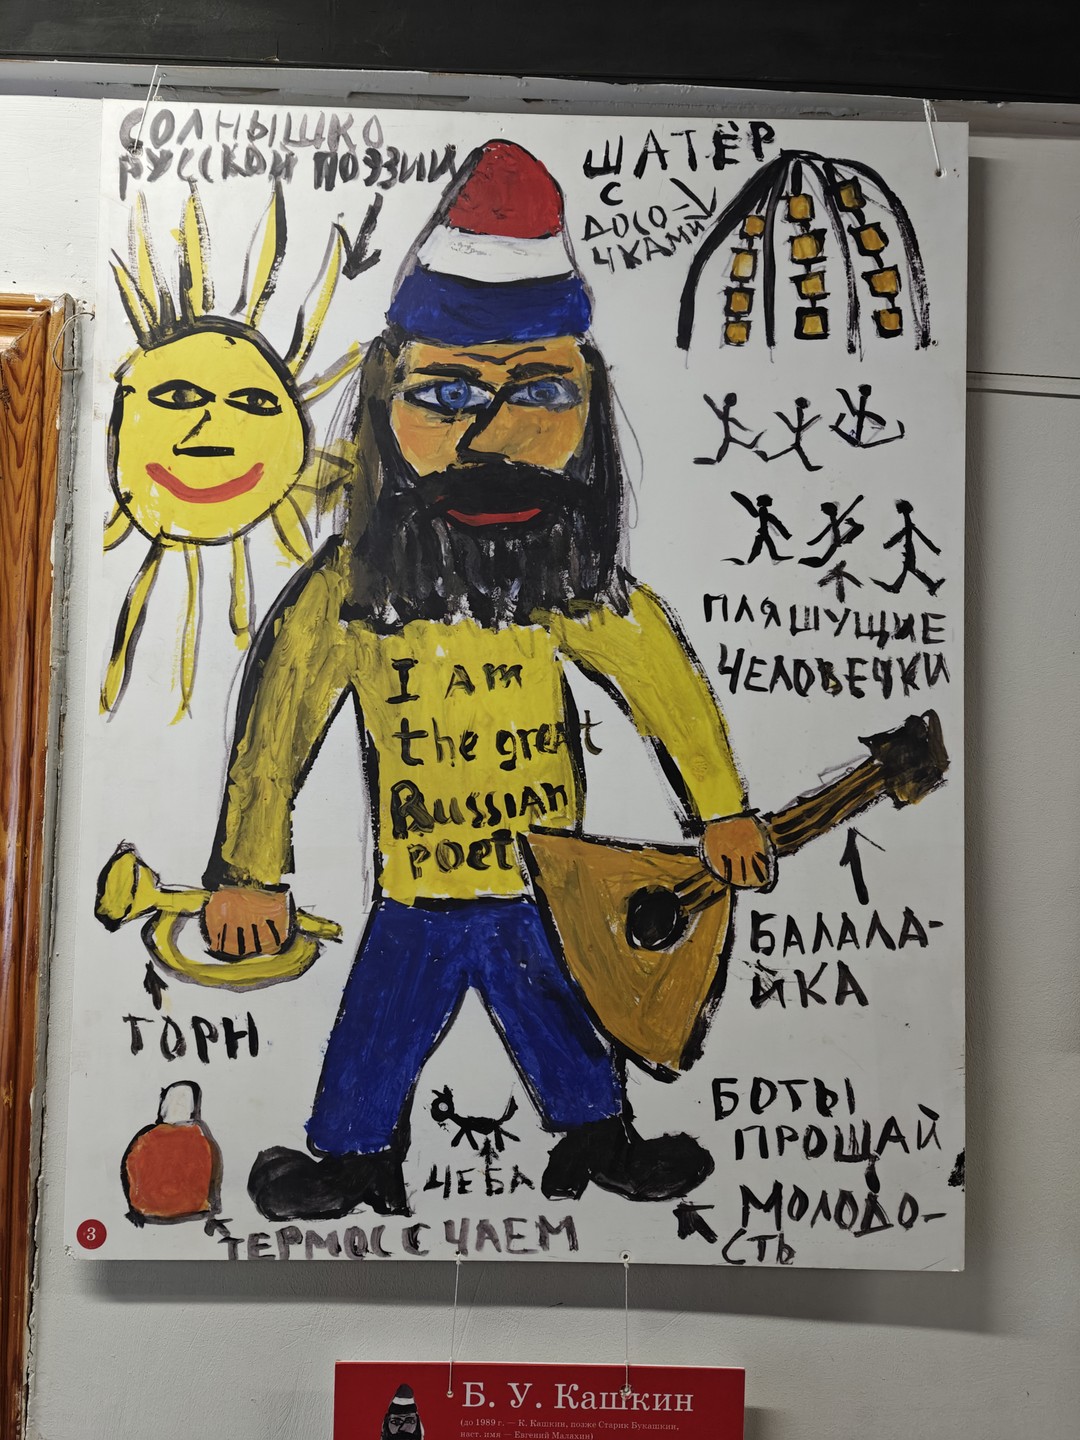 СОЛНЫШКО
РУССКОЙ ПОЭЗИИ
ШАТЁР
С
ДОСО-
ЧКАМИ
ПЛЯШУЩИЕ
ЧЕЛОВЕЧКИ
I Am
the great
Russian
poet
БАЛАЛА-
ЙКА
ГОРН
БОТЫ
ПРОЩАЙ
МОЛОДО-
СТЬ
ЧЕБА
ТЕРМОС С ЧАЕМ
3
Б. У. Кашкин
(до 1989 г. — К. Кашкин, позже Старик Букашкин,
наст. имя — Евгений Малахин)